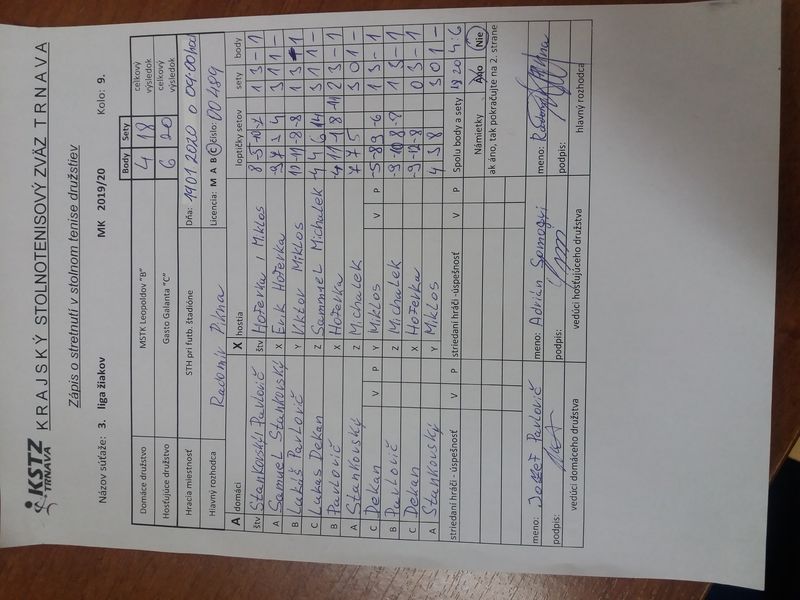 KSTZ
TRNAVA
KRAJSKÝ STOLNOTENISOVÝ ZVÄZ TRNAVA
Zápis o stretnutí v stolnom tenise družstiev
Názov súťaže: 3. liga žiakov MK 2019/20 Kolo: 9.
Body Sety
Domáce družstvo MSTK Leopoldov "B" 4 18 celkový výsledok
Hosťujúce družstvo Gasto Galanta "C" 6 20 celkový výsledok
Hracia miestnosť STH pri futb. štadióne Dňa: 19.01.2020 o 09:00 hod
Hlavný rozhodca Radomír Pikna Licencia: M A B C číslo 00489
A domáci X hostia loptičky setov sety body
štv Stankovský Pavlovič štv Hoferka, Miklos 1 3 - 1
A Samuel Stankovský X Erik Hoferka 3 1 1 -
B Lukáš Pavlovič Y Viktor Miklos 1 3 - 1
C Lukas Dekan Z Sammuel Michalek 3 1 1 -
B Pavlovič X Hoferka 2 3 - 1
A Stankovský Z Michalek 7 7 5 3 0 1 -
C Dekan V P Y Miklos V P -5 -8 9 -6 1 3 - 1
B Pavlovič Z Michalek 1 3 - 1
C Dekan X Hoferka -9 -12 -8 0 3 - 1
A Stankovský Y Miklos 4 3 8 3 0 1 -
striedaní hráči - úspešnosť V P striedaní hráči -úspešnosť V P Spolu body a sety 18 20 4 : 6
Námietky Áno Nie
ak áno, tak pokračujte na 2. strane
meno: Jozef Pavlovič meno: Adrián Somogyi meno:
podpis: podpis: podpis:
vedúci domáceho družstva vedúci hosťujúceho družstva hlavný rozhodca